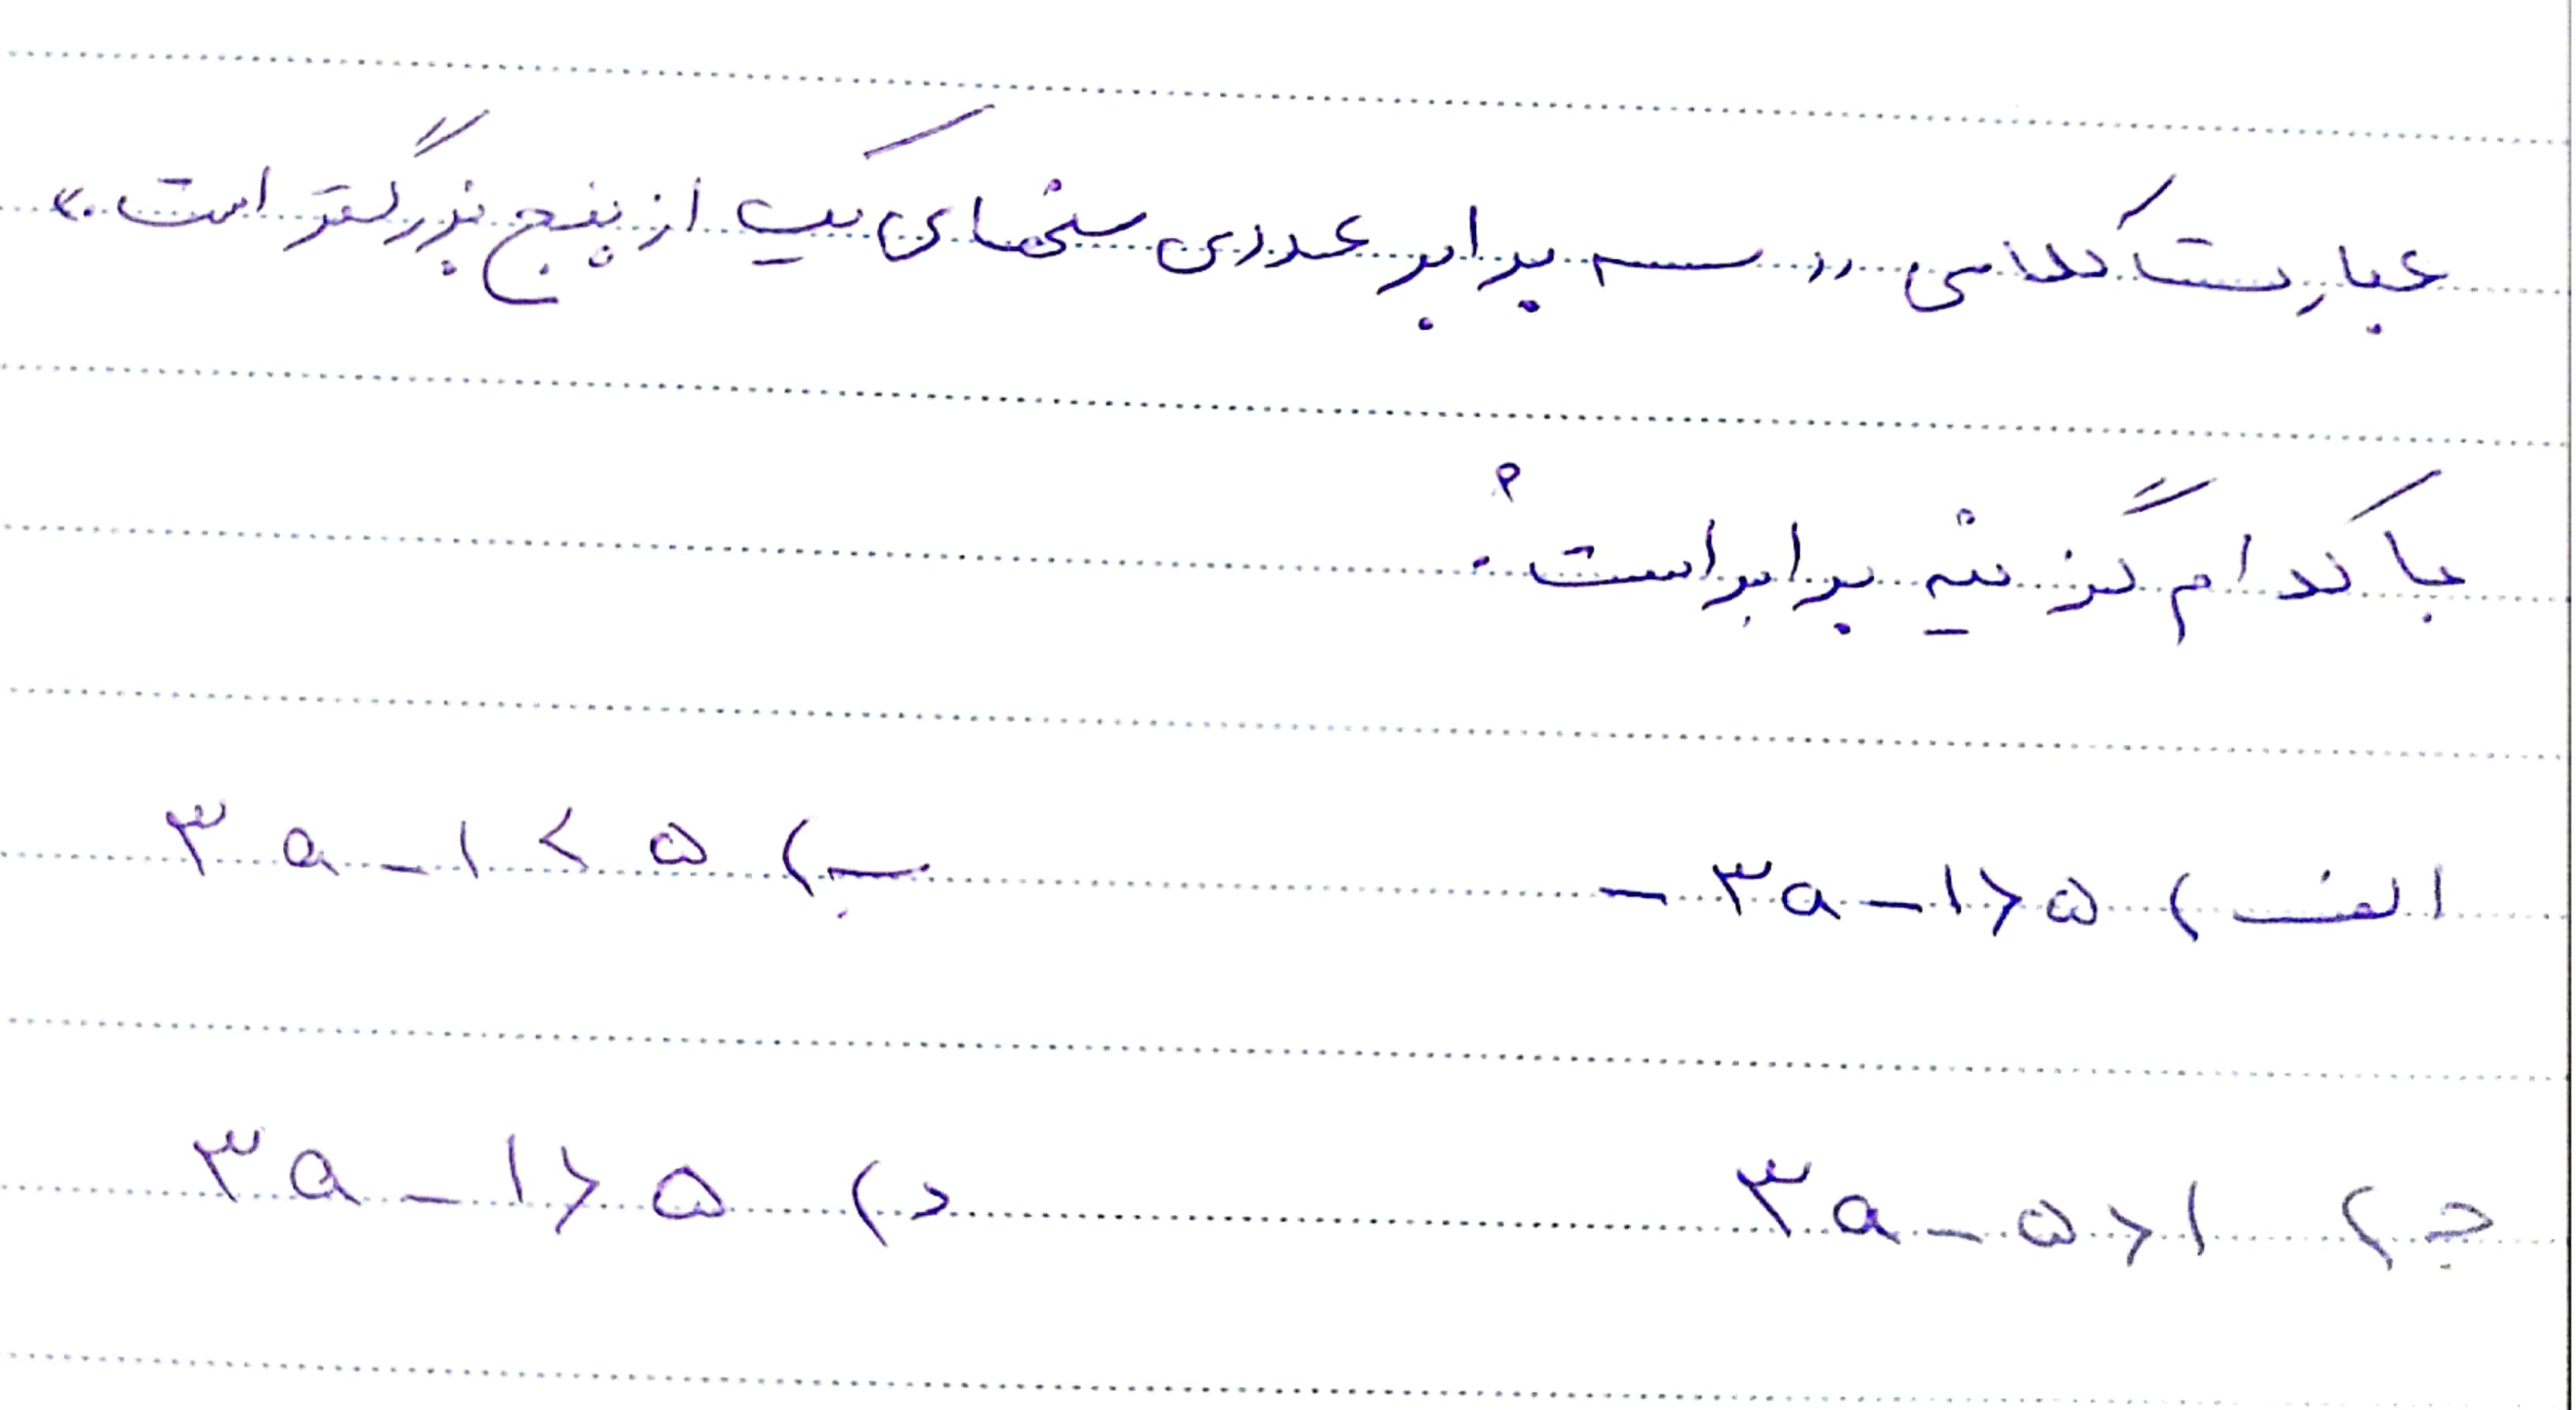 عبارت کلامی «سه برابر عددی منهای یک از پنج بزرگتر است.»
با کدام گزینه برابر است؟
الف) -۳a-۱>۵ ب) ۳a-۱<۵
ج) ۳a-۵>۱ د) ۳a-۱>۵